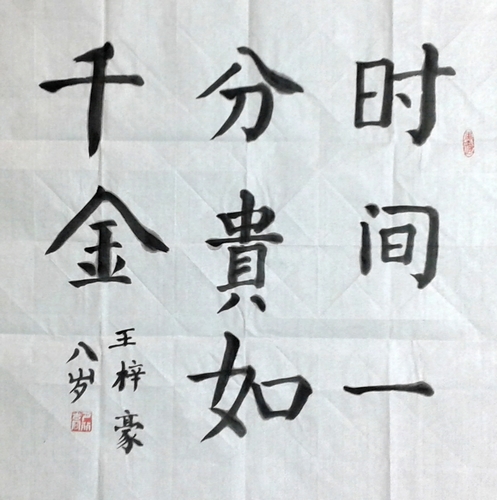 时间一
分貴如
千金
王梓豪
八岁